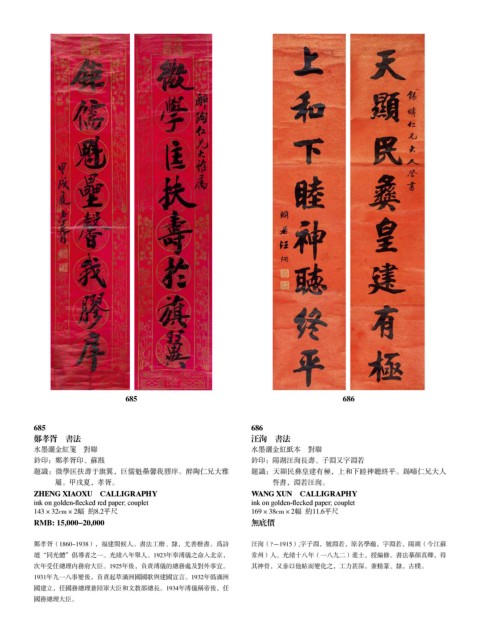 微學匡扶壽於旗翼
醉陶仁兄大雅屬
鉅儒魁壘馨我膠序
甲戌夏
天顯民彝皇建有極
錫疇仁兄大人詧書
上和下睦神聽終平
淵若汪洵
685
686
685
鄭孝胥 書法
水墨灑金紅箋 對聯
鈐印:鄭孝胥印、蘇戡
題識:微學匡扶壽于旗翼,巨儒魁壘馨我膠序。醉陶仁兄大雅
屬。甲戌夏,孝胥。
ZHENG XIAOXU CALLIGRAPHY
ink on golden-flecked red paper; couplet
143 × 32cm × 2幅 約8.2平尺
RMB: 15,000–20,000
鄭孝胥(1860–1938),福建閩候人。書法工楷、隸,尤善楷書。爲詩
壇“同光體”倡導者之一。光緒八年舉人。1923年奉溥儀之命入北京,
次年受任總理內務府大臣。1925年後,負責溥儀的總務處及對外事宜。
1931年九一八事變後,負責起草滿洲國國歌與建國宣言。1932年僞滿洲
國建立,任國務總理兼陸軍大臣和文教部總長。1934年溥儀稱帝後,任
國務總理大臣。
686
汪洵 書法
水墨灑金紅紙本 對聯
鈐印:陽湖汪洵長壽、子淵又字淵若
題識:天顯民彝皇建有極,上和下睦神聽終平。錫疇仁兄大人
詧書,淵若汪洵。
WANG XUN CALLIGRAPHY
ink on golden-flecked red paper; couplet
169 × 38cm × 2幅 約11.6平尺
無底價
汪洵(?–1915),字子淵,號淵若,原名學瀚,字淵若,陽湖(今江蘇
常州)人。光緒十八年(一八九二)進士,授編修。書法摹顏真卿,得
其神骨,又參以他帖而變化之,工力甚深。兼精篆、隸,古樸。